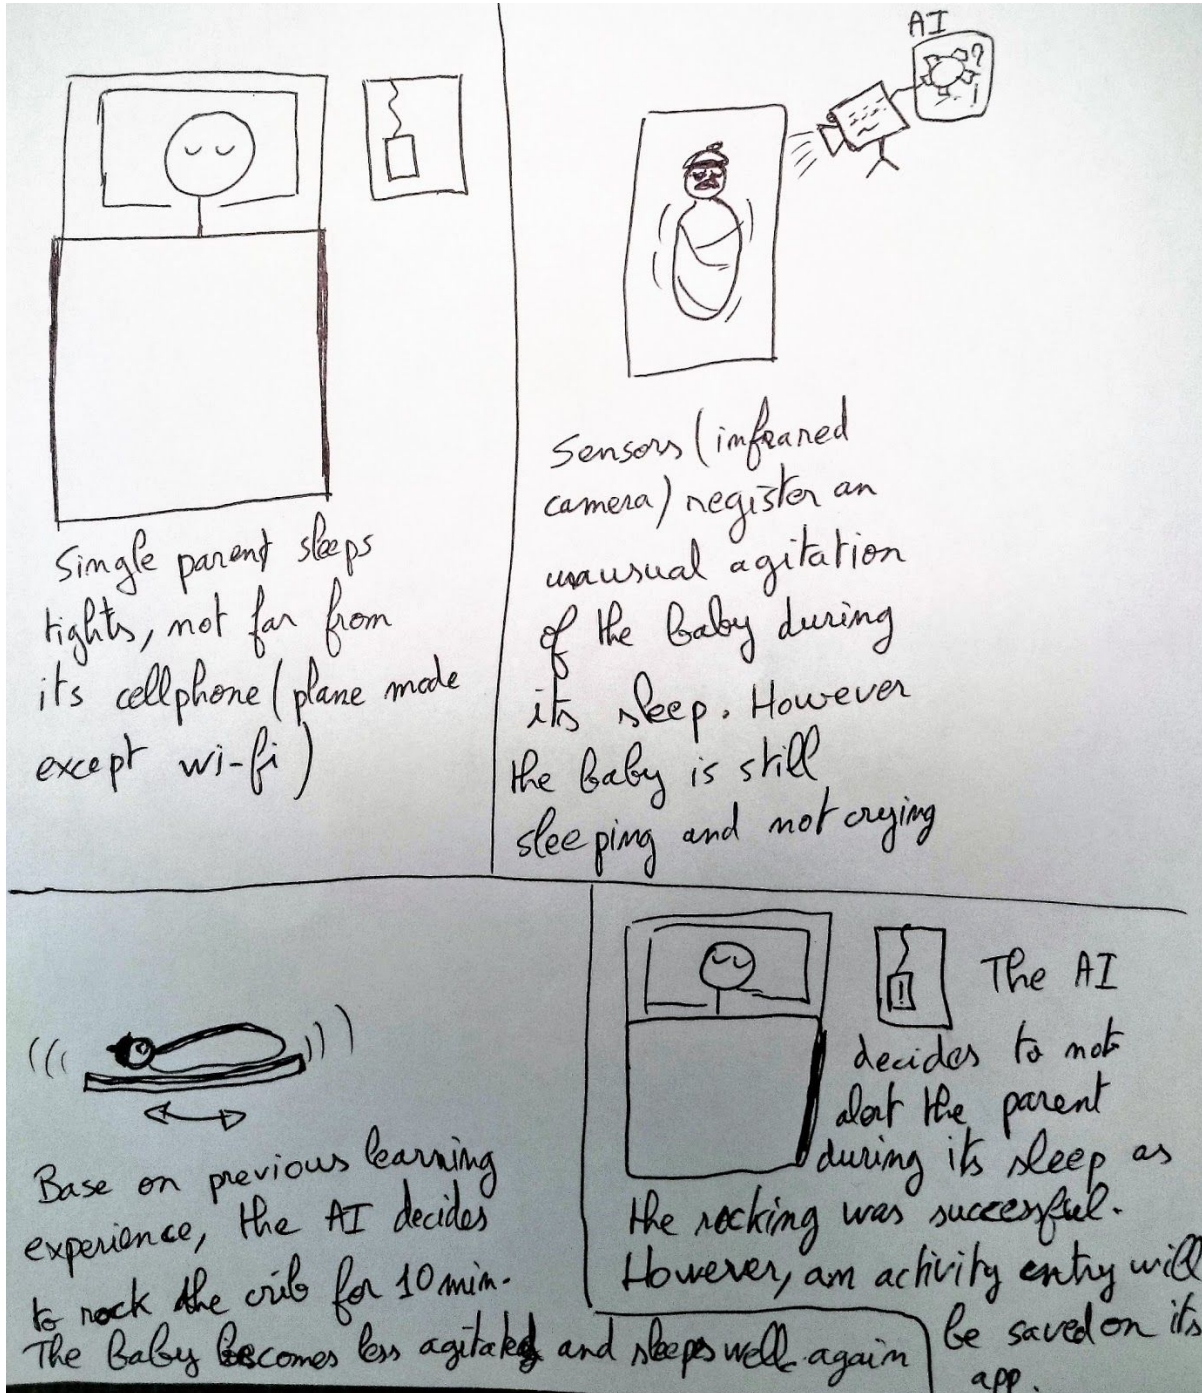 Single parent sleeps
tights, not far from
its cellphone (plane mode
except wi-fi)
AI
?
!
Sensors (infrared
camera) register an
unusual agitation
of the baby during
its sleep. However
the baby is still
sleeping and not crying
Base on previous learning
experience, the AI decides
to rock the crib for 10 min.
The baby becomes less agitated and sleeps well again
!
The AI
decides to not
alert the parent
during its sleep as
the rocking was successful.
However, an activity entry will
be saved on its
app.